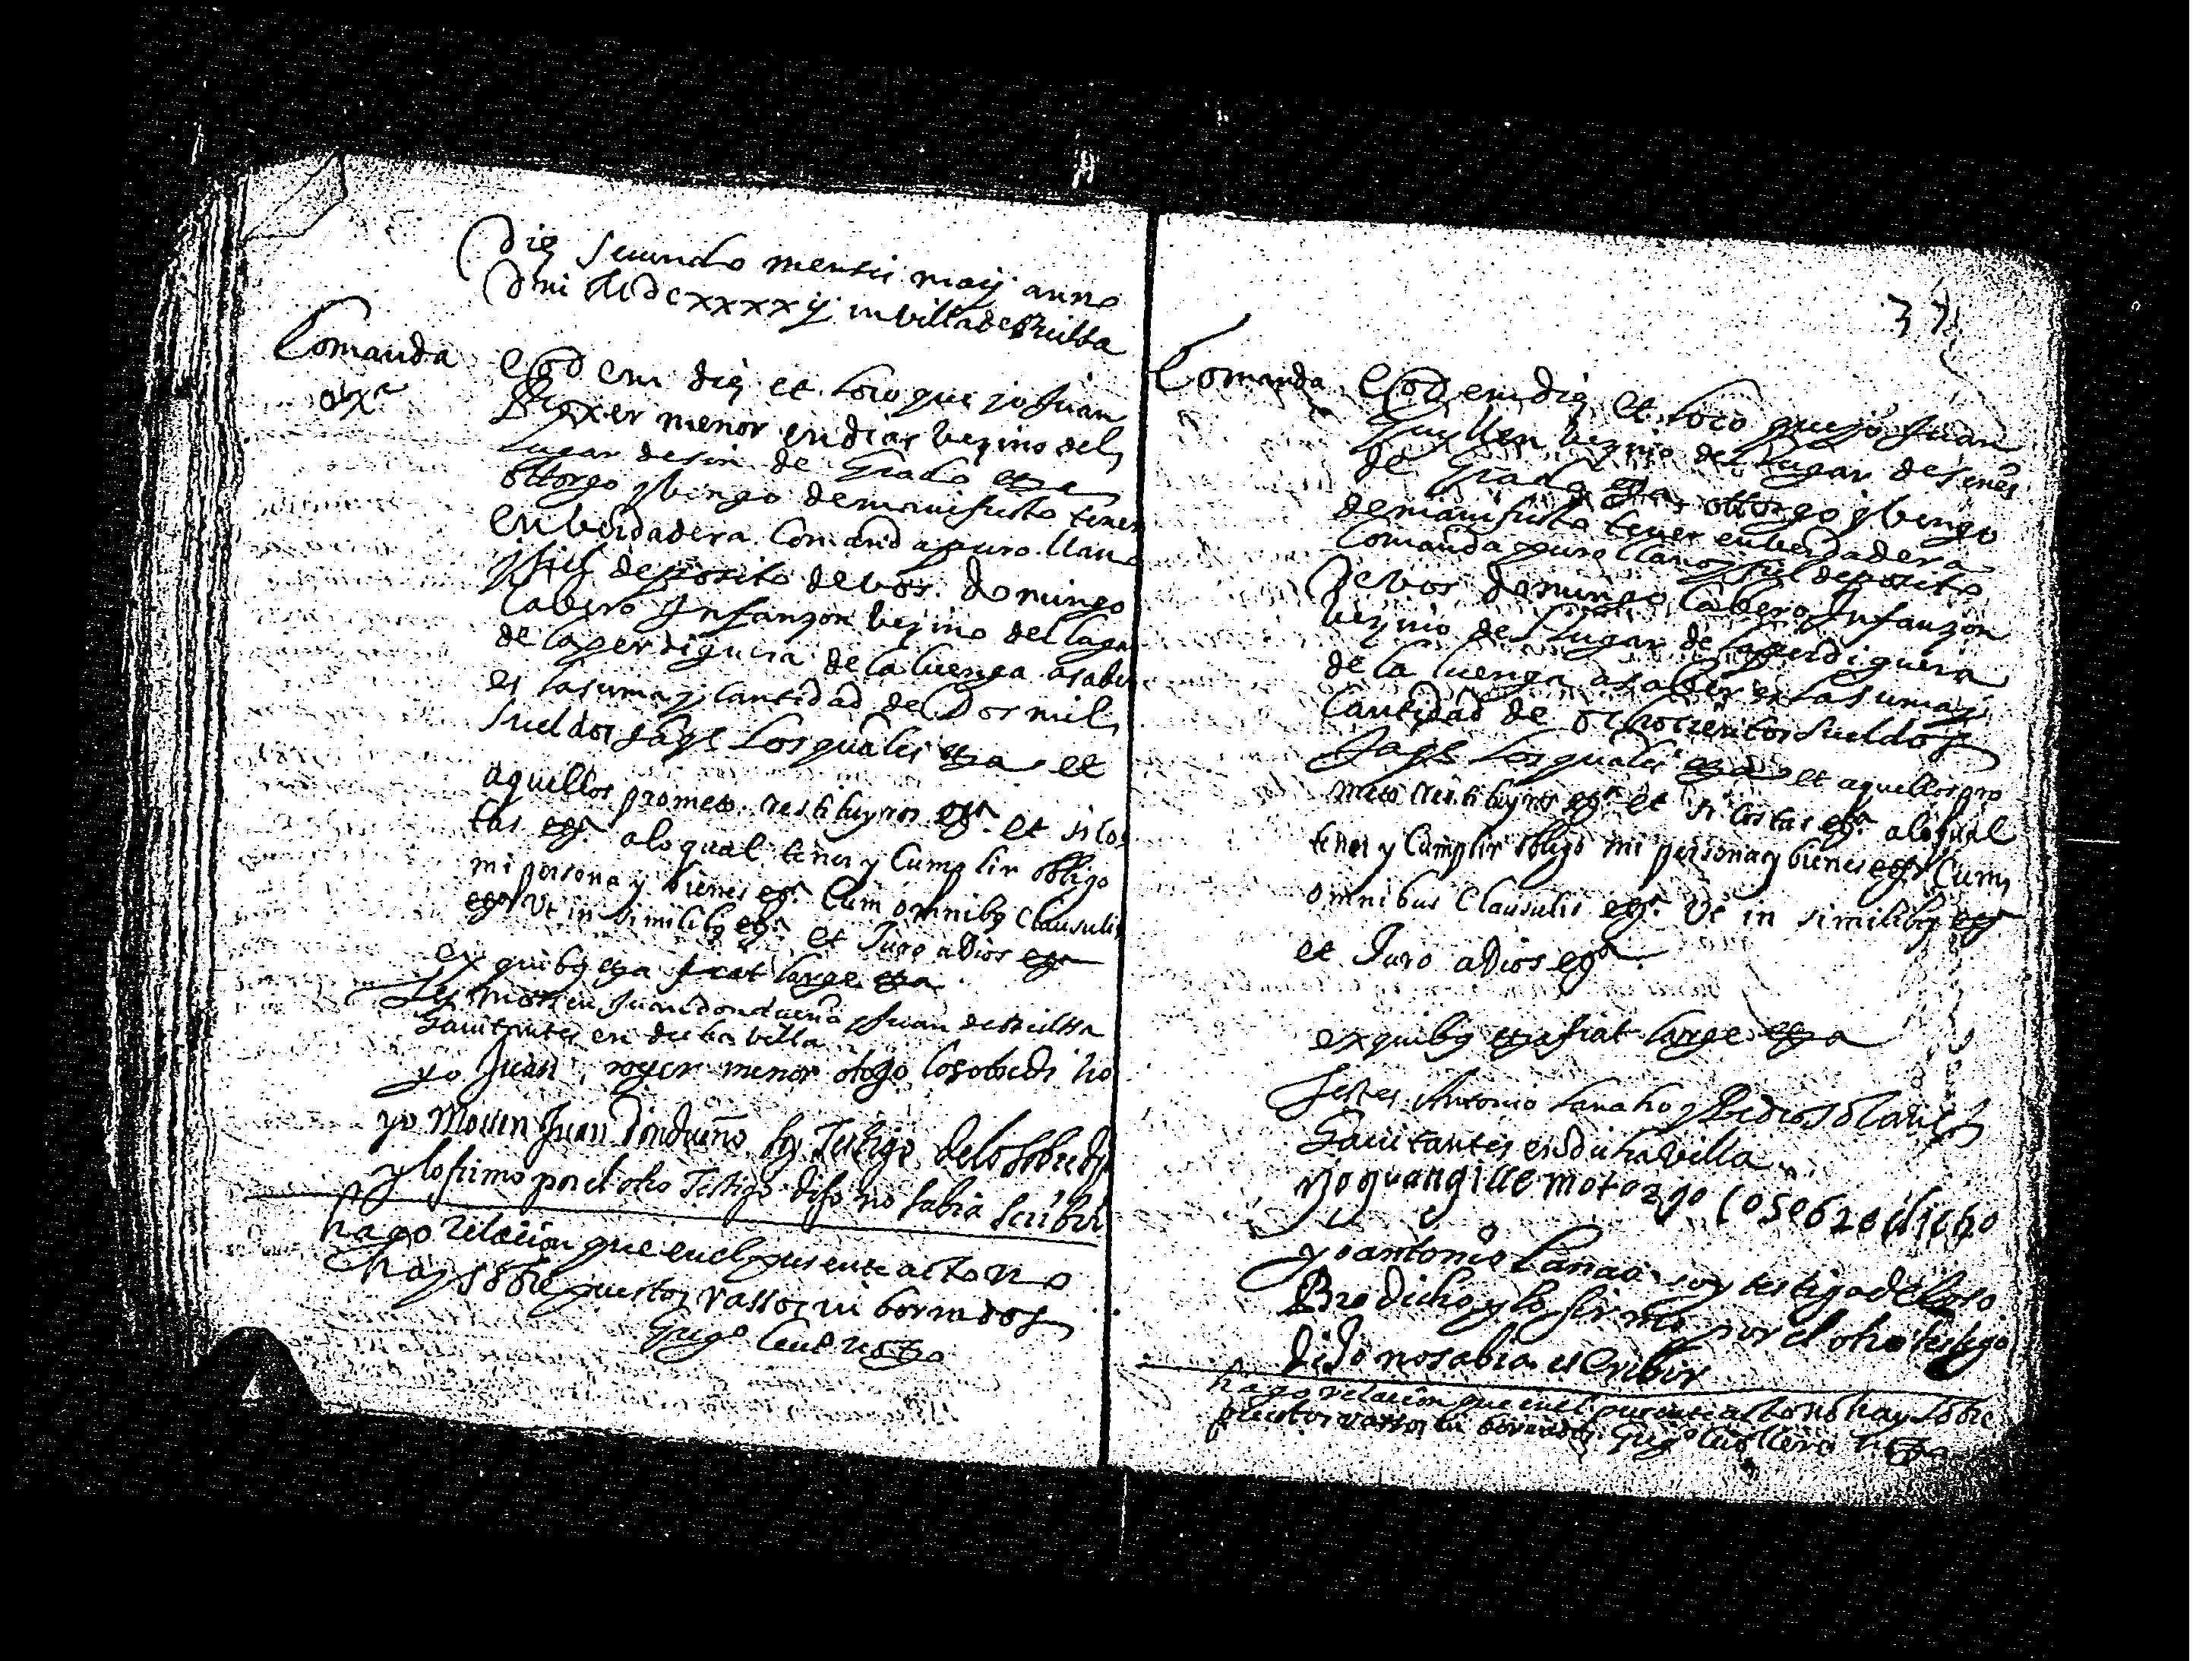 Die secundo mensis maij anno
Dni MDCxxxxij in villa de
Comanda
Eodem die et loco que yo Juan
menor en dias vezino del
lugar de de Grado etta
ottorgo y bengo de manifiesto tener
en berdadera Comanda puro llano
y fiel deposito de bos Domingo
Cabero Infanzon bezino del lugar
de la perdiguera de la luenga a saber
es la suma y Cantidad de Dos mil
sueldos Jaqs los quales etta et
aquellos prometo restituyros etta et si cos
tas etta a lo qual tener y Cumplir obligo
mi persona y bienes etta Cum omnibq Clausulis
etta Ut in similibq etta et Juro a Dios etta
ex quibq etta fiat large etta
Juan y Juan
hauitantes en dicha villa
yo Juan menor otogo lo sobredi ho
yo Mosen Juan Dondueño soy Testigo de lo sobredi
y lo firmo por el otro Testigo diso no sabia scribir
hago relacion que en el presente acto no
hay sobre puestos rassos ni borrados
37
Comanda
Eodem die et loco que yo Juan
Guyllen bezino del lugar de
de Grado etta ottorgo y bengo
de manifiesto tener en berdadera
Comanda puro llano y fiel deposito
de bos domingo Cabero Infanzon
bezino del lugar de la perdiguera
de la luenga a saber es la suma y
Cantidad de ochocientos sueldos
Jaqs los quales etta et aquellos pro
meto restituyros etta et si costas etta a lo qual
tener y Cumplir obligo mi persona y bienes etta Cum
omnibus Clausulis etta Ut in similibq etta
et Juro a Dios etta
ex quibq etta fiat large etta
Testes Antonio Lanaho y Pedro
hauitantes en dicha villa
yo quan gille motorgo lo sobredicho
yo antonio Lanao soy testigo de lo so
Bredicho y lo firmo por el otro testigo
diJo no sabia esCribir
hago relacion que en el presente acto no hay sobre
puestos rassos ni borrados